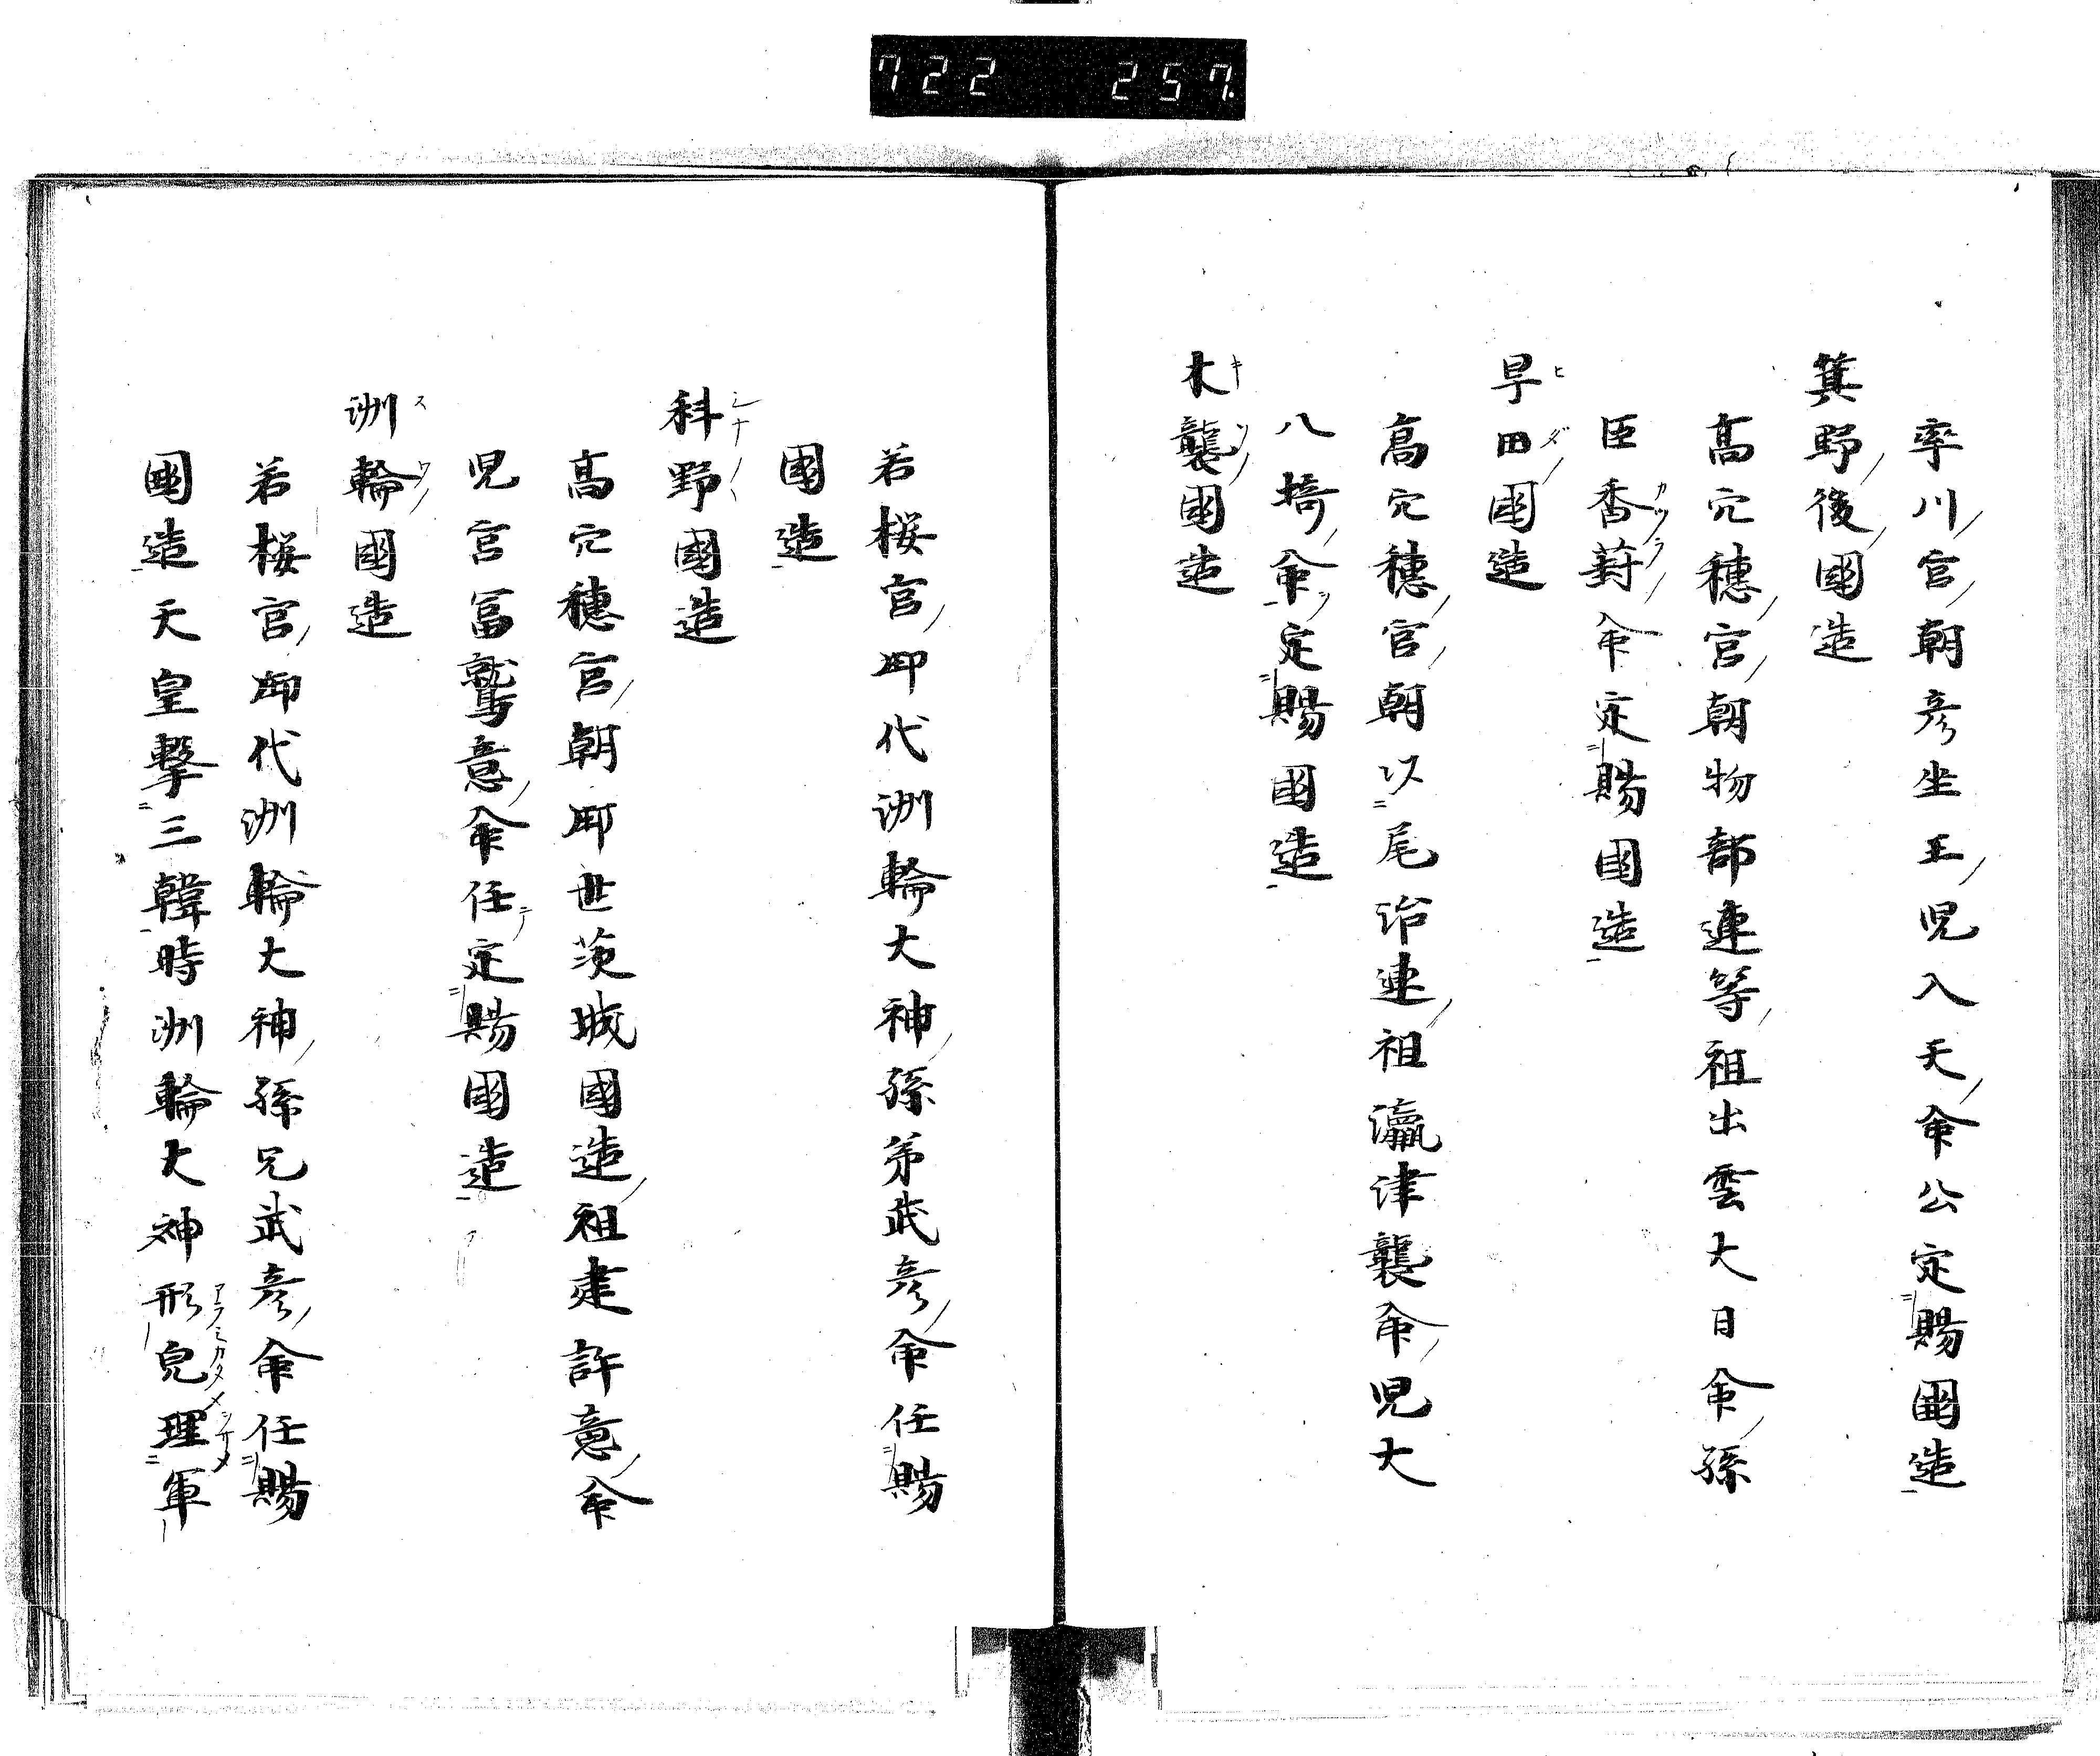 722 257.
率川宮朝彦坐王児八天命公定賜國造
箕野後國造
高穴穂宮朝物部連等祖出雲大日命孫
臣香葑命定賜國造
早田國造
高穴穂宮朝以尾治連祖瀛津襲命児大
八掎命定賜國造
木襲國造
若桜宮御代洲輪大神孫弟武彦命任賜
國造
科野國造
高穴穂宮朝御世茨城國造祖建許意命
児宮冨鷲意命任定賜國造
洲輪國造
若桜宮御代洲輪大神孫兄武彦命任賜
國造天皇撃三韓時洲輪大神形皃理軍